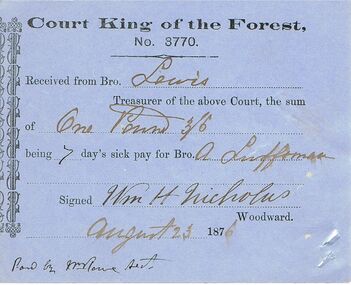 Court King of the Forest,
No. 3770.
Received from Bro. Lewis
Treasurer of the above Court, the sum
of One Pound 3/6
being 7 day's sick pay for Bro. A
Signed Wm H Nicholas
Woodward.
August 23 1876
Paid by Mr Rowe Sect.